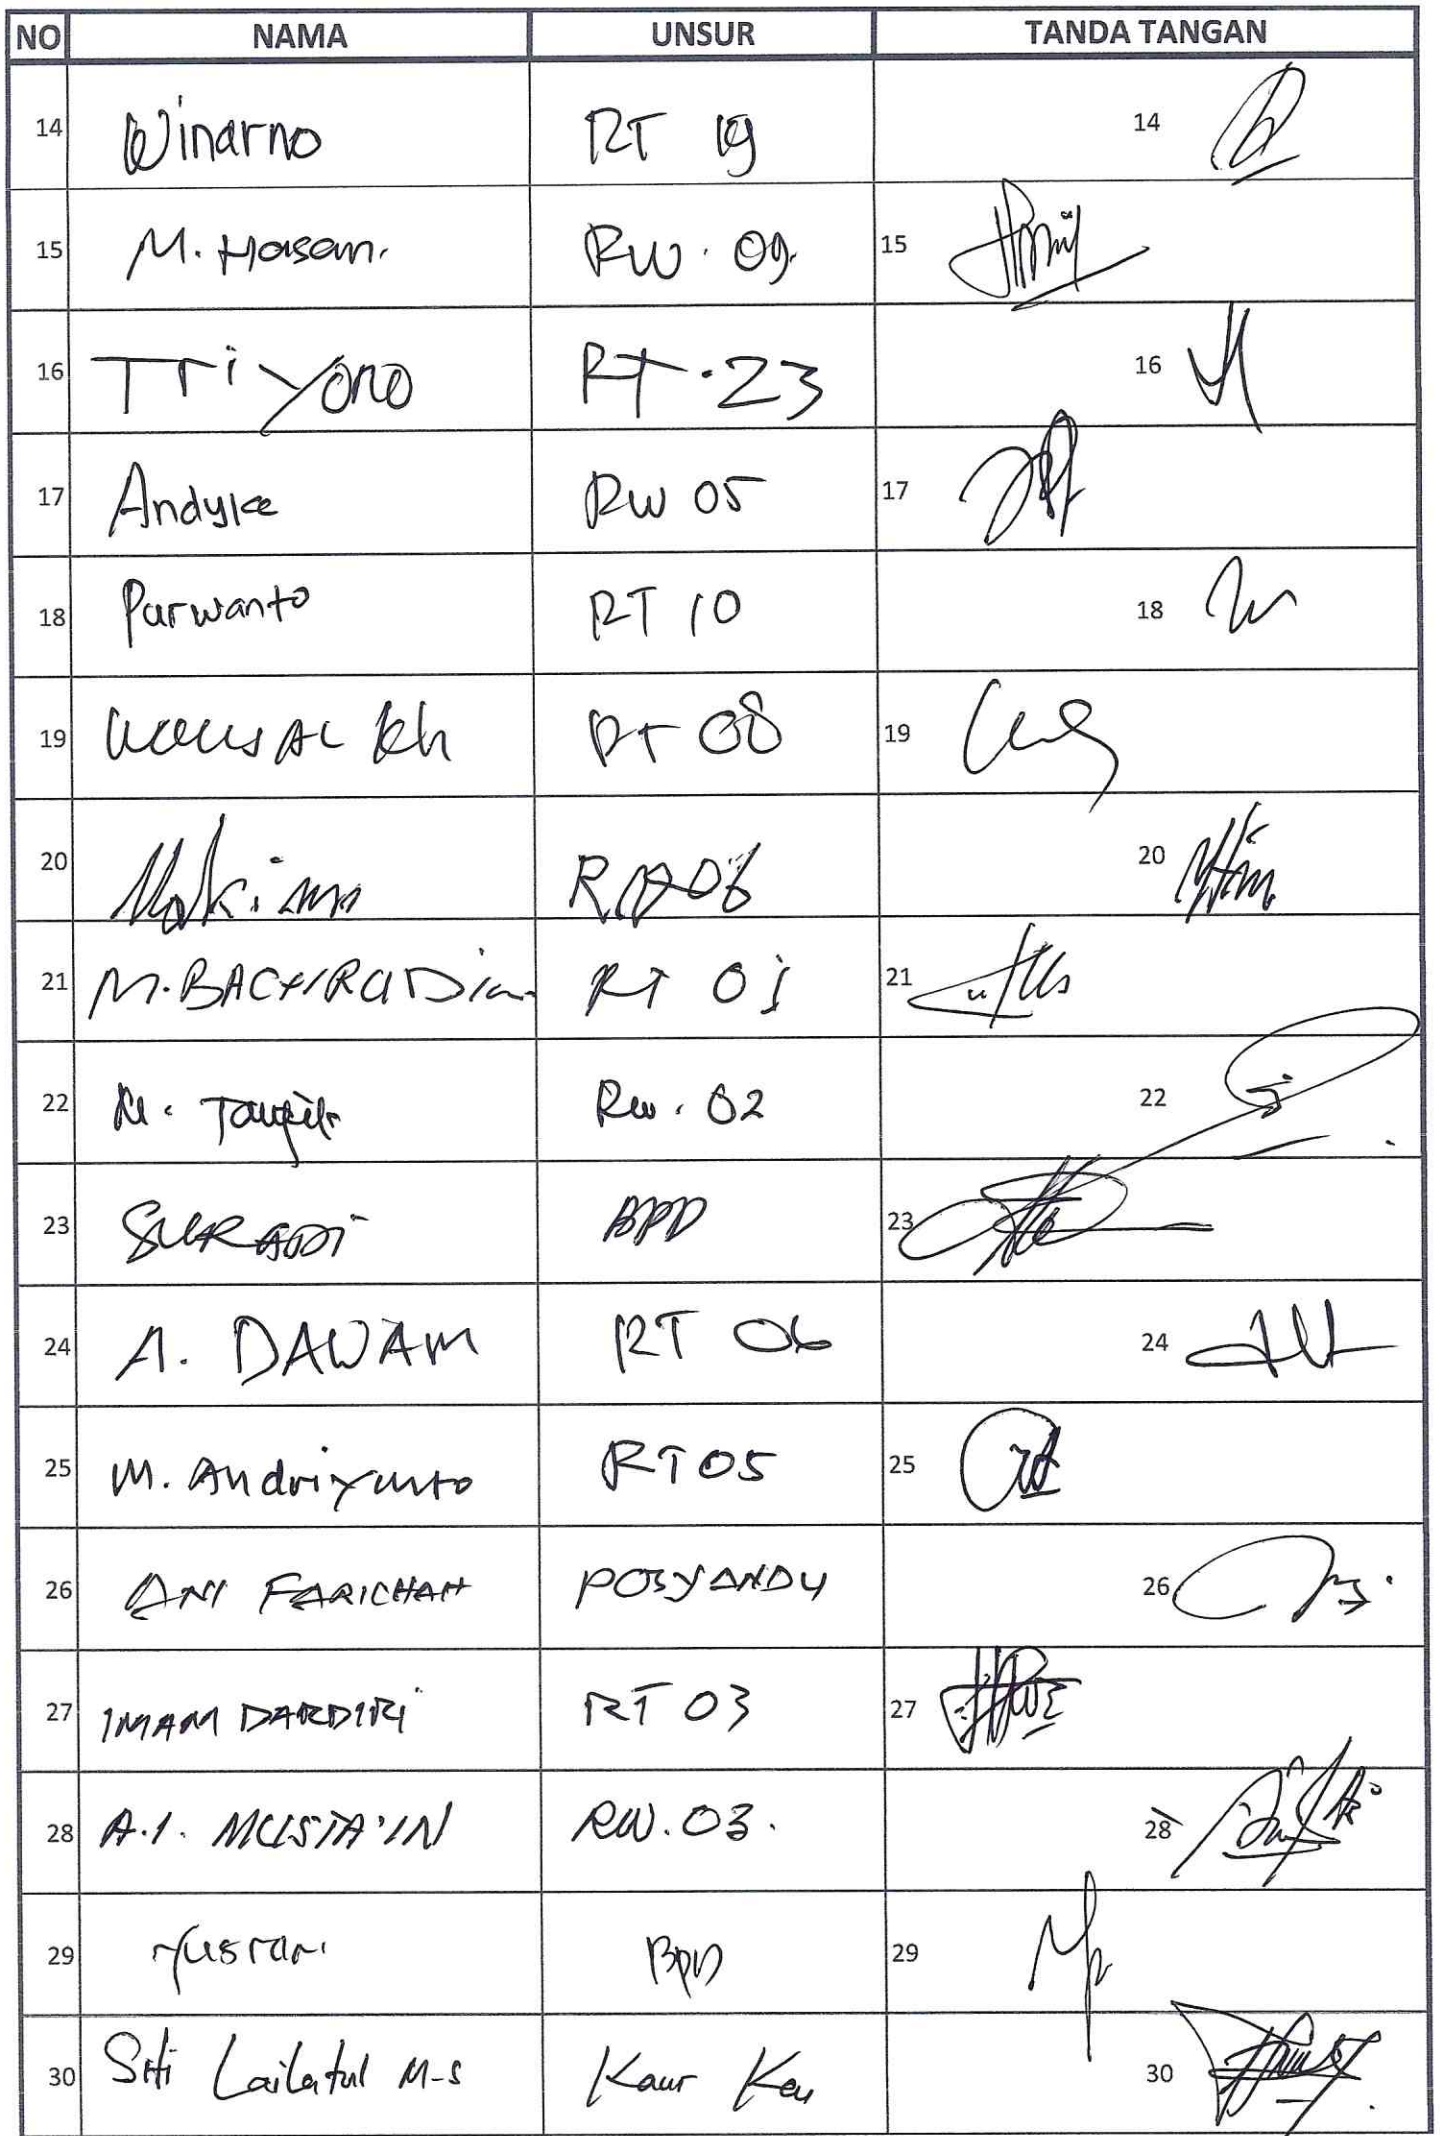 NO NAMA UNSUR TANDA TANGAN
14 Winarno RT 19 14
15 M. Hasan. RW. 09. 15
16 Tri Yono RT. 23 16
17 Andyke RW 05 17
18 Purwanto RT 10 18
19 RT 08 19
20 20
21 RT 01 21
22 M. Taufik RW. 02 22
23 BPD 23
24 A. DAWAM RT 06 24
25 M. Andriyanto RT 05 25
26 ANI FARICHAH POSYANDU 26
27 IMAM DARDIRI RT 03 27
28 A.I. MUSTA'IN RW. 03. 28
29 BPD 29
30 Siti Lailatul M-S Kaur Keu 30